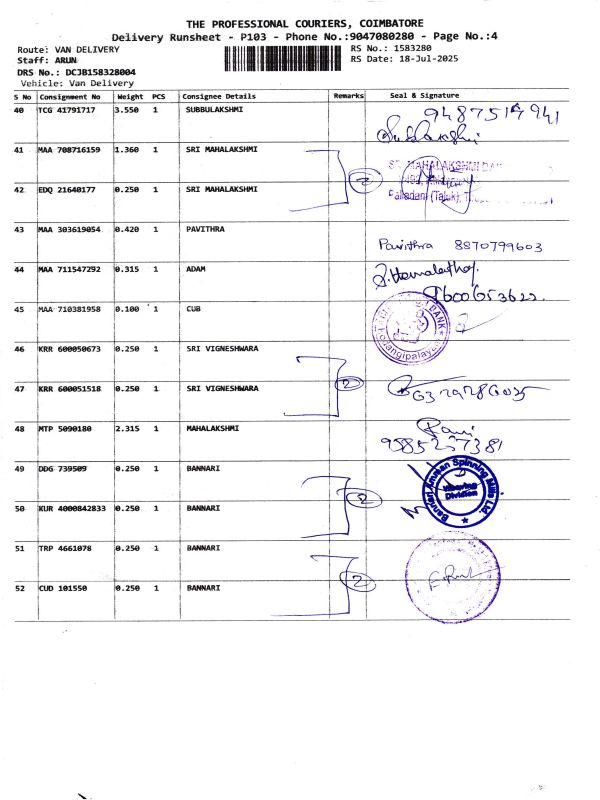 THE PROFESSIONAL COURIERS, COIMBATORE
Delivery Runsheet - P103 - Phone No.:9047080280 - Page No.:4
Route: VAN DELIVERY
RS No.: 1583280
Staff: ARUN
RS Date: 18-Jul-2025
DRS No.: DCJB158328004
Vehicle: Van Delivery
S No Consignment No Weight PCS Consignee Details Remarks Seal & Signature
40 TCG 41791717 3.550 1 SUBBULAKSHMI
41 MAA 708716159 1.360 1 SRI MAHALAKSHMI
2
SRI MAHALAKSHMI
42 EDQ 21640177 0.250 1 SRI MAHALAKSHMI
Palladam (Taluk),
43 MAA 303619054 0.420 1 PAVITHRA
Pavithra 8870799603
44 MAA 711547292 0.315 1 ADAM
S. Hemalatha
9600653622
45 MAA 710381958 0.100 1 CUB
BANK
46 KRR 600050673 0.250 1 SRI VIGNESHWARA
2
47 KRR 600051518 0.250 1 SRI VIGNESHWARA
48 MTP 5090180 2.315 1 MAHALAKSHMI
Rani
9585257381
49 DDG 739509 0.250 1 BANNARI
2
Bannari Amman Spinning Mills Ltd.
Division
50 KUR 4000842833 0.250 1 BANNARI
51 TRP 4661078 0.250 1 BANNARI
2
52 CUD 101550 0.250 1 BANNARI